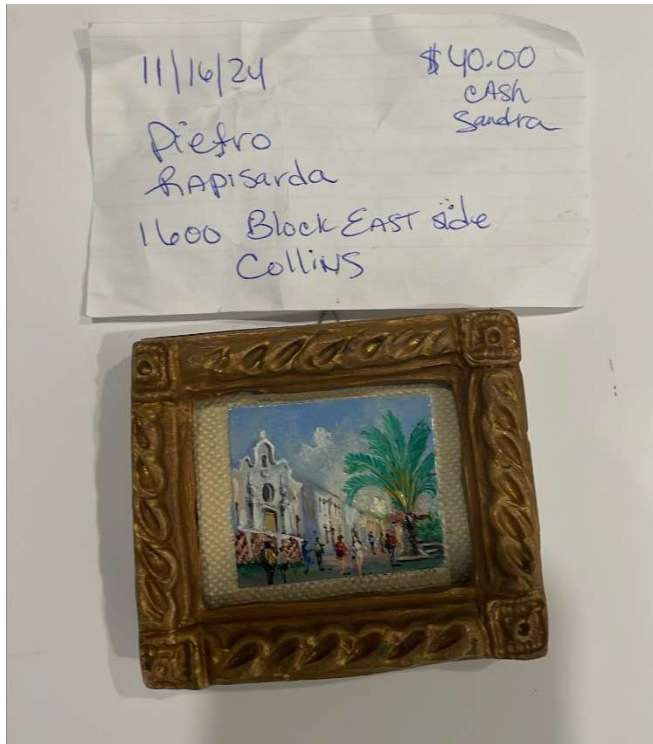 11/16/24
$40.00
cash
Sandra
Pietro
RAPISarda
1600 Block EAST side
Collins